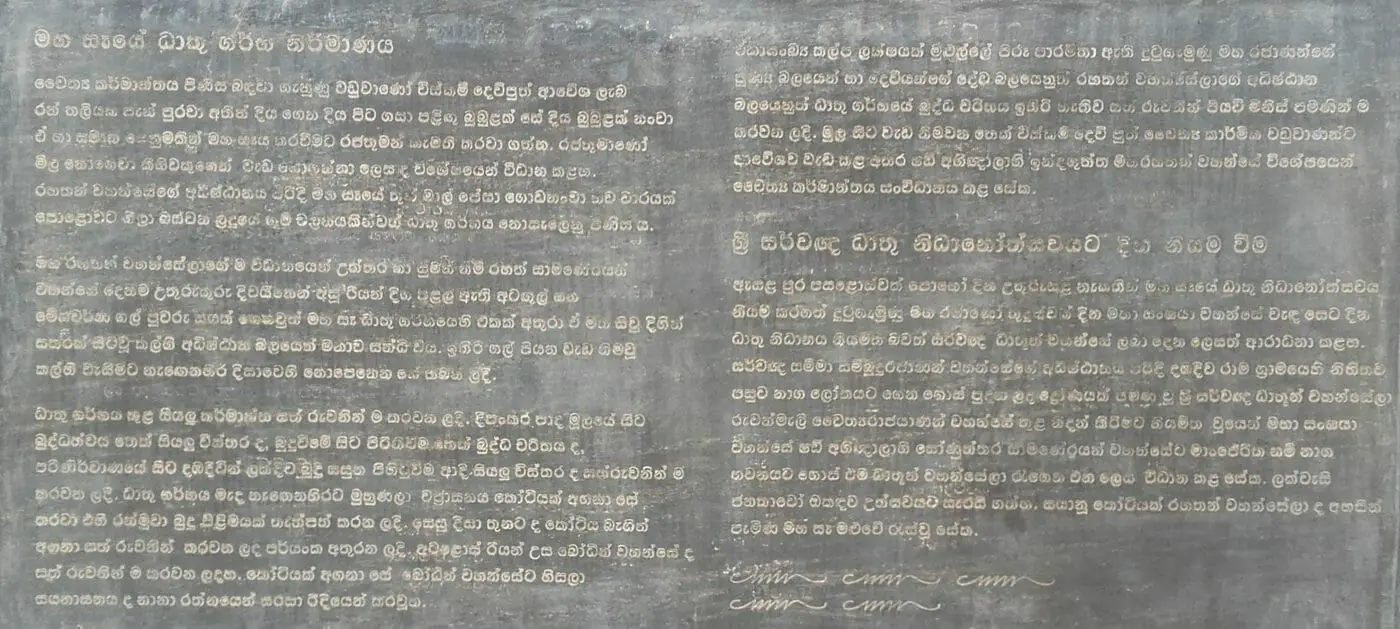 මහ සෑයේ ධාතු ගර්භ නිර්මාණය
චෛත්‍ය කර්මාන්තය පිණිස බඳවා ගැනුණු වඩුවාණෝ විස්කම් දෙව්පුත් ආවේශ ලැබ
රන් තලියක පැන් පුරවා අතින් දිය ගෙන දිය පිට ගසා පළිඟු බුබුළක් සේ දිය බුබුළක් නංවා
ඒ හා සමාන සෙනුමකින් මහ සෑය කරවීමට රජතුමන් කැමති කරවා ගත්හ. රජතුමාණෝ
මිල නොගෙවා කිසිවකුගෙන් වැඩ නොගන්නා ලෙස ද විශේෂයෙන් විධාන කළහ.
රහතන් වහන්සේගේ අධිෂ්ඨානය පරිදි මහ සෑයේ තුන් මාල් පේසා ගොඩනංවා නව වාරයක්
පොළොවට ගිලා බස්වන ලදුයේ භූමි චලනයකින්වත් ධාතු ගර්භය නොසැලෙනු පිණිස ය.
මහ රහතන් වහන්සේලාගේ ම විධානයෙන් උත්තර හා සුමන නම් රහත් සාමණේරයන්
වහන්සේ දෙනම උතුරුකුරු දිවයිනෙන් අසූ රියන් දිග පළල ඇති අටඟුල් ඝන
මේඝවර්ණ ගල් පුවරු සයක් ගෙනවුත් මහ සෑ ධාතු ගර්භයෙහි එකක් අතුරා ඒ මත සිවු දිගින්
සතරක් සිටවූ කල්හි අධිෂ්ඨාන බලයෙන් මනාව සන්ධි විය. ඉතිරි ගල් පියන වැඩ නිමවූ
කල්හි වැසීමට නැගෙනහිර දිසාවෙහි නොපෙනෙන සේ තබන ලදී.
ධාතු ගර්භය තුළ සියලු කර්මාන්ත සත් රුවනින් ම කරවන ලදී. දීපංකර පාද මූලයේ සිට
බුද්ධත්වය තෙක් සියලු විස්තර ද, බුදුවීමේ සිට පිරිනිවීම තෙක් බුද්ධ චරිතය ද,
පරිනිර්වාණයේ සිට දඹදිවින් ලක්දිව බුදු සසුන පිහිටුවීම ආදී සියලු විස්තර ද සත්රුවනින් ම
කරවන ලදී. ධාතු ගර්භය මැද නැගෙනහිරට මුහුණලා වජ්‍රාසනය කෝටියක් අගනා සේ
කරවා එහි රන්මුවා බුදු පිළිමයක් තැන්පත් කරන ලදී. ඉසසු දිසා තුනට ද කෝටිය බැගින්
අගනා සත් රුවනින් කරවන ලද පර්යංක අතුරන ලදී. අටළොස් රියන් උස බෝධීන් වහන්සේ ද
සත් රුවනින් ම කරවන ලදහ. කෝටියක් අගනා සේ බෝධීන් වහන්සේට හිසලා
සයනාසනය ද නානා රත්නයෙන් සරසා රිදියෙන් කරවූහ.
ඒධාසංඛ්‍ය කල්ප ලක්ෂයක් මුළුල්ලේ පිරූ පාරමිතා ඇති දුටුගැමුණු මහ රජාණන්ගේ
පුණ්‍ය බලයෙන් හා දෙවියන්ගේ දේව බලයෙනුත් රහතන් වහන්සේලාගේ අධිෂ්ඨාන
බලයෙනුත් ධාතු ගර්භයේ බුද්ධ චරිතය ඉතිරි නැතිව සත් රුවනින් පියවි මිනිස් පමණින් ම
කරවන ලදී. මුල සිට වැඩ නිමවන තෙක් විස්කම් දෙව් පුත් චෛත්‍ය කාර්මික වඩුවාණන්ට
ආවේශව වැඩ කළ අතර ෂඩ් අභිඥාලාභී ඉන්ද්‍රගුත්ත මහරහතන් වහන්සේ විශේෂයෙන්
චෛත්‍ය කර්මාන්තය සංවිධානය කළ සේක.
ශ්‍රී සර්වඥ ධාතු නිධානෝත්සවයට දින නියම වීම
ඇසළ පුර පසළොස්වක් පොහෝ දින උතුරුසළ නැකතින් මහ සෑයේ ධාතු නිධානෝත්සවය
නියම කරගත් දුටුගැමුණු මහ රජාණෝ තුදුස්වක් දින මහා සංඝයා වහන්සේ වැඳ හෙට දින
ධාතු නිධානය නියමිත බවත් සර්වඥ ධාතූන් වහන්සේ ලබා දෙන ලෙසත් ආරාධනා කළහ.
සර්වඥ සම්මා සම්බුදුරජාණන් වහන්සේගේ අධිෂ්ඨානය පරිදි දඹදිව රාම ග්‍රාමයෙහි නිහිතව
පසුව නාග ලෝකයට ගෙන ගොස් පුදන ලද ද්‍රෝණයක් පමණ වූ ශ්‍රී සර්වඥ ධාතූන් වහන්සේලා
රුවන්මැලි චෛත්‍යරාජයාණන් වහන්සේ තුළ නිදන් කිරීමට නියමිත වූයෙන් මහා සංඝයා
වහන්සේ ෂඩ් අභිඥාලාභී සෝණුත්තර සාමණේරයන් වහන්සේට මාංජේරික නම් නාග
භවනයට ගොස් එම ධාතූන් වහන්සේලා රැගෙන එන ලෙස විධාන කළ සේක. ලක්වැසි
ජනතාවෝ ඔකඳව උත්සවයට සැරසී ගත්හ. සයානූ කෝටියක් රහතන් වහන්සේලා ද අහසින්
පැමිණ මහ සෑ මළුවේ රැස්වූ සේක.